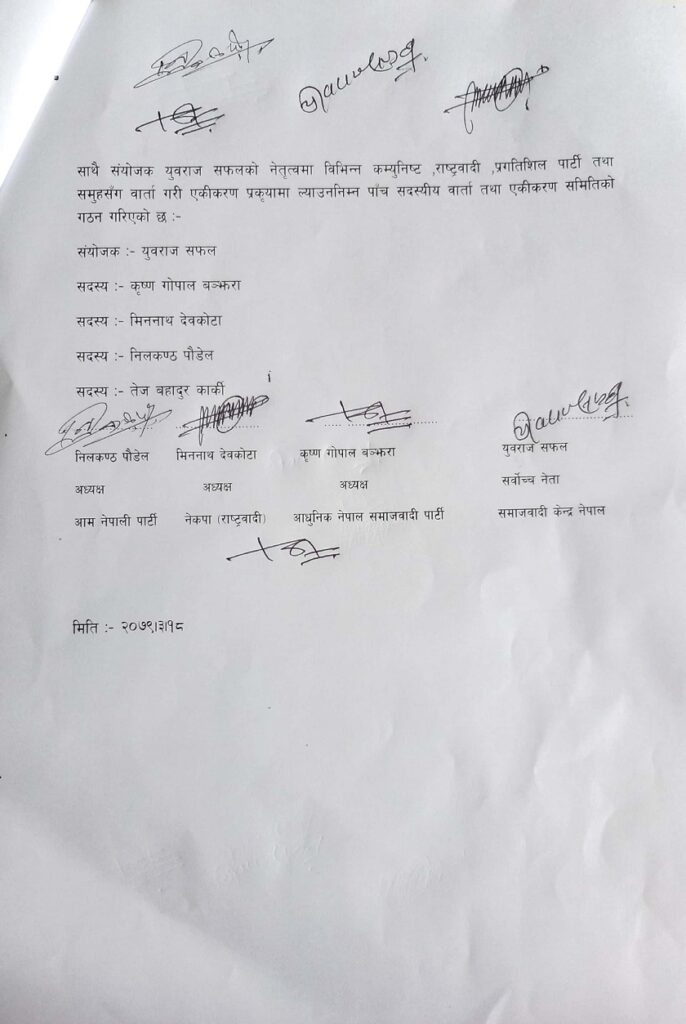 साथै संयोजक युवराज सफलको नेतृत्वमा विभिन्न कम्युनिष्ट ,राष्ट्रवादी ,प्रगतिशिल पार्टी तथा
समुहसँग वार्ता गरी एकीकरण प्रकृयामा ल्याउननिम्न पाँच सदस्यीय वार्ता तथा एकीकरण समितिको
गठन गरिएको छ :-
संयोजक :- युवराज सफल
सदस्य :- कृष्ण गोपाल बञ्झरा
सदस्य :- मिननाथ देवकोटा
सदस्य :- निलकण्ठ पौडेल
सदस्य :- तेज बहादुर कार्की
निलकण्ठ पौडेल मिननाथ देवकोटा कृष्ण गोपाल बञ्झरा युवराज सफल
अध्यक्ष अध्यक्ष अध्यक्ष सर्वोच्च नेता
आम नेपाली पार्टी नेकपा (राष्ट्रवादी) आधुनिक नेपाल समाजवादी पार्टी समाजवादी केन्द्र नेपाल
मिति :- २०७९।३।१८